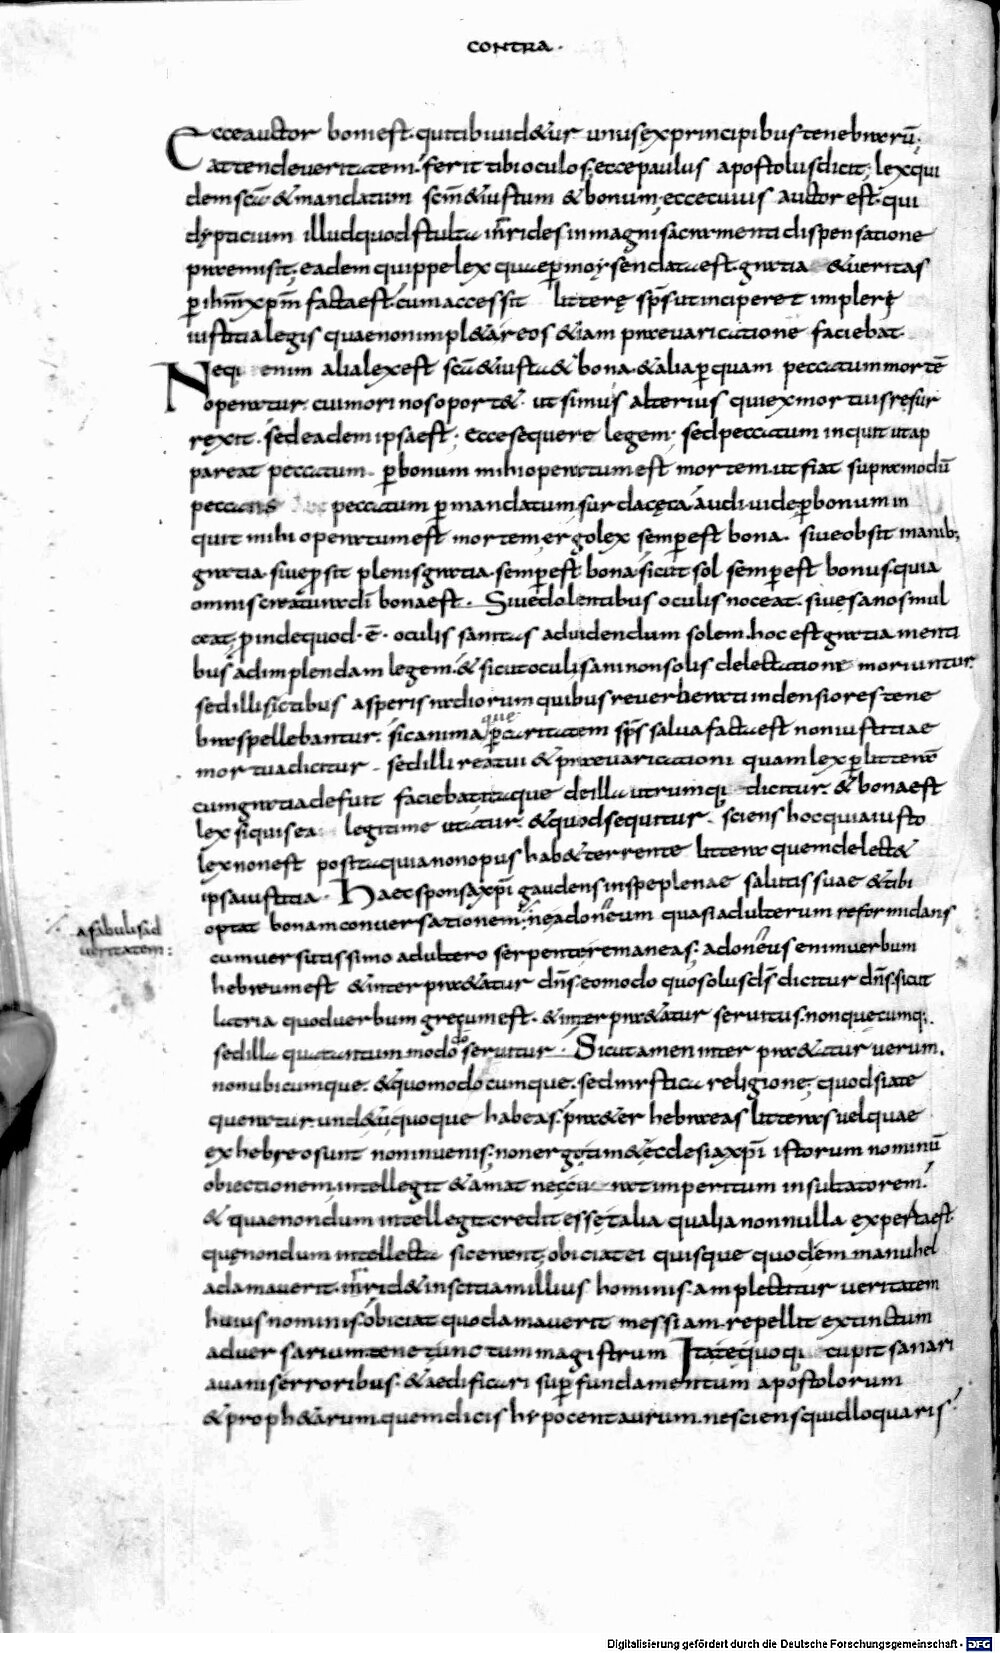 CONTRA.
Ecce auctor boni est. qui tibi uidetur unus ex principibus tenebrarū.
attende ueritatem. ferit tibi oculos; ecce paulus apostolus dicit; lex qui
dem scā & mandatum scm̄ & iustum & bonum; ecce cuius auctor est. qui
dypticium illud quod stulte inrides in magni sacramenti dispensatione
praemisit; eadem quippe lex quae p̄ moysen data est. gratia & ueritas
p̄ ihm̄ xpm̄ facta est. cum accessit litterę sps̄ ut inciperet implerę
iustitia legis quae non impleta reos etiam praeuaricatione faciebat.
Neq; enim alia lex est scā & iusta & bona. & alia p̄ quam peccatum mortē
operatur. cui mori nos oportet. ut simus alterius qui ex mortuis resur
rexit. sed eadem ipsa est; Ecce sequere legem; sed peccatum inquit ut ap
pareat peccatum. p̄ bonum mihi operatum est mortem. ut fiat supra modū
peccans peccatum p̄ mandatum. surda cęca audi. uide p̄ bonum in
quit mihi operatum est mortem; ergo lex semp̄ est bona. siue obsit inanib;
gratia. siue p̄sit plenis gratia. semp̄ est bona. sicut sol semp̄ est bonus. quia
omnis creatura dī bona est. Siue dolentibus oculis noceat. siue sanos mul
ceat; p̄inde quod .ē. oculis sanitas ad uidendum solem. hoc est gratia menti
bus ad implendam legem. & sicut oculi sani non solis delectatione moriuntur.
sed illis ictibus asperis radiorum quibus reuerberati in densiores tene
bras pellebantur. sic anima que p̄ caritatem sps̄ salua facta est non iustitiae
mortua dicitur. sed illi reatui & praeuaricationi quam lex p̄ litterā
cum gratia defuit faciebat; itaque de illa utrumq; dicitur. & bona est
lex si quis ea legitime utatur. & quod sequitur. sciens hoc quia iusto
lex non est posita quia non opus habet terrente littera quem delectet
ipsa iustitia. Haec sponsa xpī gaudens in spe plenae salutis suae & tibi
optat bonam conuersationem. ne adoneum quasi adulterum reformidans
a fabulis ad
ueritatem:
cum uersutissimo adultero serpente remaneas; adoneus enim uerbum
hebreum est & interpraetatur dn̄s. eo modo quo solus ds̄ dicitur dn̄s. sicut
latria quod uerbum gręcum est. & interpraetatur seruitus. non quecumq;.
sed illa qua tantum modo dō seruitur. Sic et amen interpraetatur uerum.
non ubicumque. & quomodocumque. sed mystica religione; quod si a te
queratur. unde utrumquoque habeas. praeter hebraeas litteras uel quae
ex hebreo sunt non inuenis; non ergo timet ecclesia xpī istorum nominū
obiectionem; intellegit & amat nec curat imperitum insultatorem.
& quae nondum intellegit. credit esse talia qualia nonnulla experta est
quę nondum intellecta sic erant; obiciat ei quisque quod emmanuhel
adamauerit. inridet inscitiam illius hominis. amplectitur ueritatem
huius nominis. obiciat quod amauerit messiam. repellit extinctum
aduersarium. tenet unctum magistrum Ita te quoq; cupit sanari
a uanis erroribus. & aedificari sup̄ fundamentum apostolorum
& prophetarum. quem dicis hypocentaurum. nesciens quid loquaris.
Digitalisierung gefördert durch die Deutsche Forschungsgemeinschaft - DFG